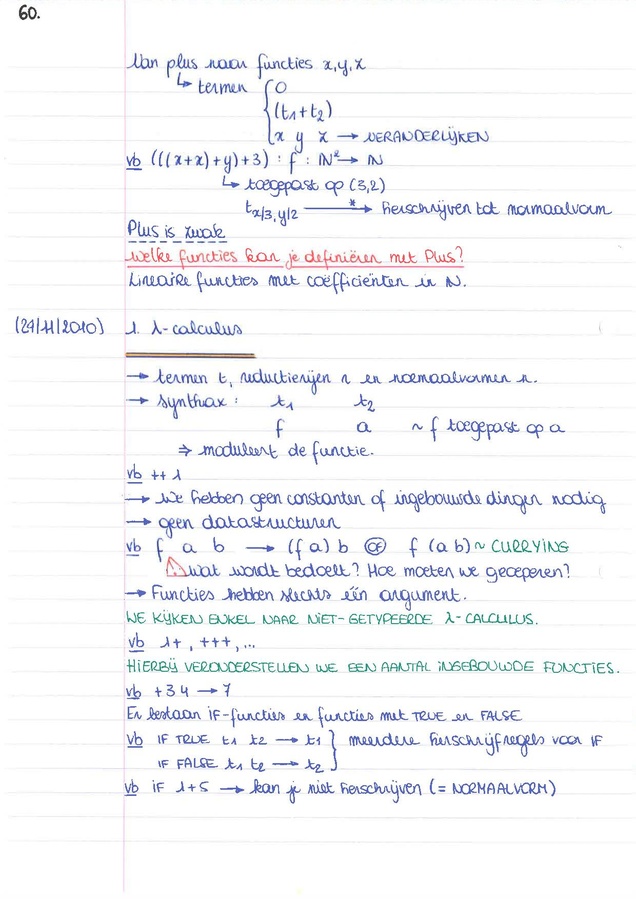 60.
Van plus naar functies x, y, z
↳ termen { 0
(t1+t2)
x y z → VERANDERLIJKEN
vb (((x+x)+y)+3) : f : ℕ² → ℕ
↳ toegepast op (3,2)
t x/3, y/2 —*→ herschrijven tot normaalvorm
Plus is zwak
Welke functies kan je definiëren met Plus?
Lineaire functies met coëfficiënten in ℕ.
(29/11/2010) 1. λ-calculus
→ termen t, reductierijen r en normaalvormen n.
→ synthax : t1 t2
f a ~ f toegepast op a
⇒ moduleert de functie.
vb ++ 1
→ We hebben geen constanten of ingebouwde dingen nodig
→ geen datastructuren
vb f a b → (f a) b OF f (a b) ~ CURRYING
⚠ wat wordt bedoelt? Hoe moeten we groeperen?
→ Functies hebben slechts één argument.
WE KIJKEN ENKEL NAAR NIET-GETYPEERDE λ-CALCULUS.
vb 1+, +++, ...
HIERBIJ VERONDERSTELLEN WE EEN AANTAL INGEBOUWDE FUNCTIES.
vb +34 → 7
Er bestaan IF-functies en functies met TRUE en FALSE
vb IF TRUE t1 t2 → t1 } meerdere herschrijfregels voor IF
IF FALSE t1 t2 → t2
vb IF 1+5 → kan je niet herschrijven (= NORMAALVORM)